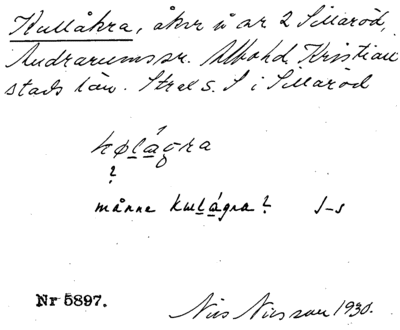 Kullåkra, åkr å ar 2 Sillaröd,
Andrarums sn. Albo hd. Kristian
stads län. Strax S. S i Sillaröd
kølágra
?
månne kulágra? S-s
Nr 5897.
Nils Nilsson 1930.